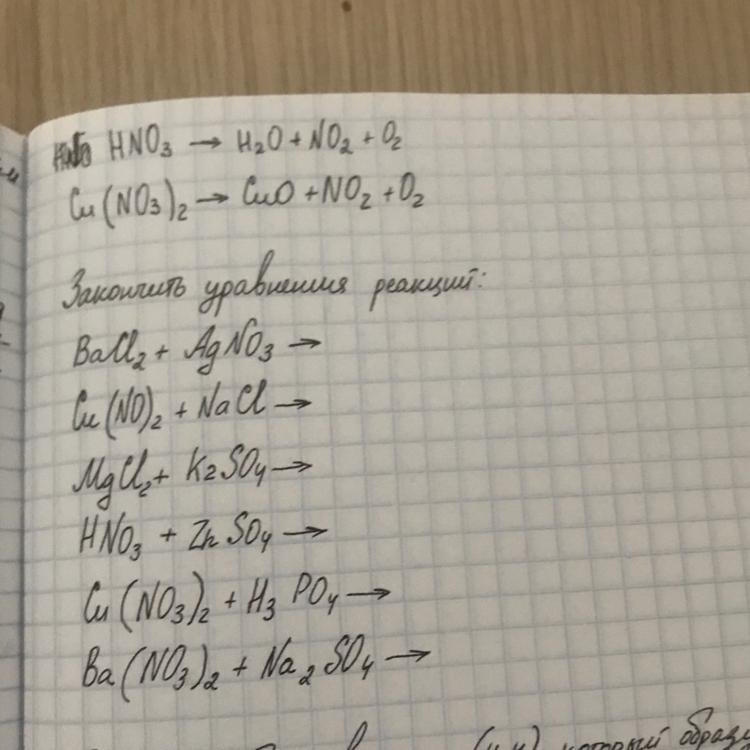 HNO₃ → H₂O + NO₂ + O₂
Cu(NO₃)₂ → CuO + NO₂ + O₂
Закончить уравнения реакций:
BaCl₂ + AgNO₃ →
Cu(NO)₂ + NaCl →
MgCl₂ + K₂SO₄ →
HNO₃ + ZnSO₄ →
Cu(NO₃)₂ + H₃PO₄ →
Ba(NO₃)₂ + Na₂SO₄ →
который